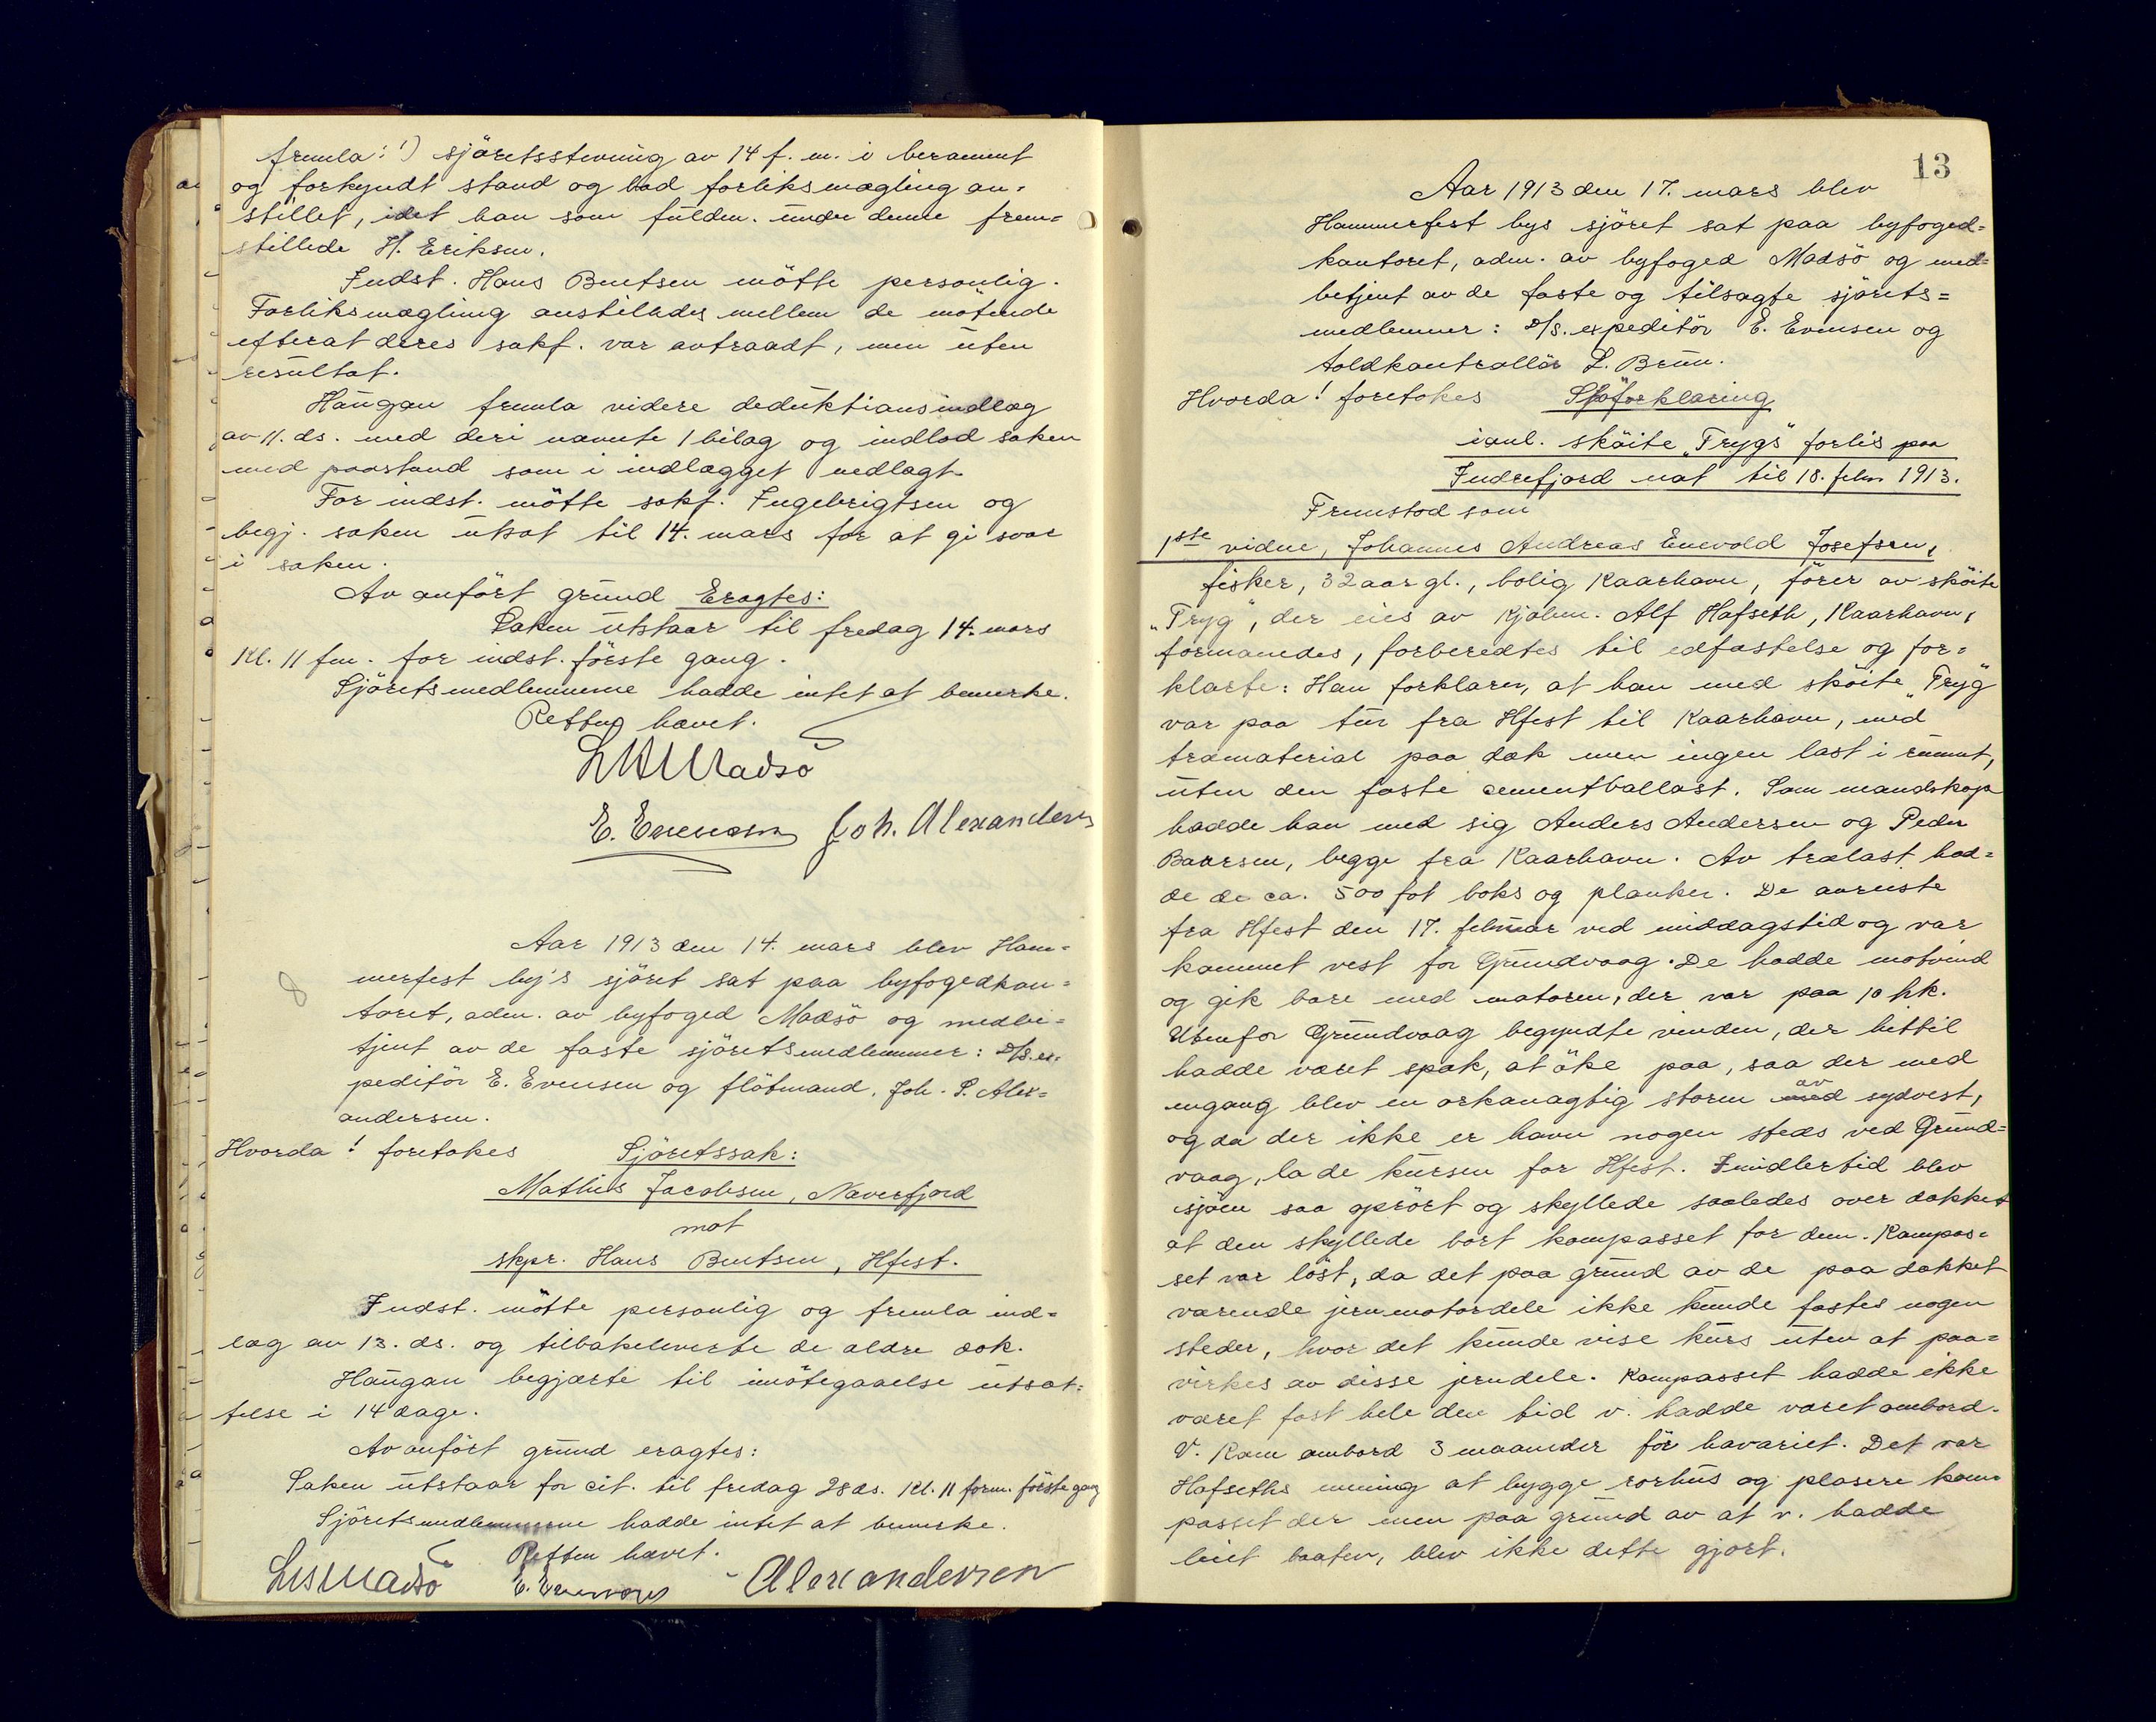 fremla: 1) sjöretsstevning av 14 f. m. i berammet
og forkyndt stand og bad forliksmægling an-
stillet, idet han som fuldm. under denne frem-
stillede H. Eriksen.
Indst. Hans Bentsen mötte personlig.
Forliksmægling anstilledes mellem de mötende
efterat deres sakf. var avtraadt, men uten
resultat.
Haugan fremla videre deduktionsindlæg
av 11. ds. med deri nævnte 1 bilag og indlod saken
med paastand som i indlægget nedlagt.
For indst. mötte sakf. Ingebrigtsen og
begj. saken utsat til 14. mars for at gi svar
i saken.
Av anfört grund Eragtes:
Saken utstaar til fredag 14. mars
Kl. 11 fm. for indst. förste gang.
Sjöretsmedlemmerne hadde intet at bemerke.
Retten hævet.
LMMadsö
E. Evensen Joh. Alexandersen
Aar 1913 den 14. mars blev Ham-
merfest by's sjöret sat paa byfogedkon-
toret, adm. av byfoged Madsö og medbe-
tjent av de faste sjöretsmedlemmer: D/S. ex-
peditör E. Evensen og flötmand. Joh. P. Alex-
andersen.
Hvorda! foretokes Sjöretssak:
Mathis Jacobsen, Næverfjord
mot
skpr. Hans Bentsen, Hfest.
Indst. mötte personlig og fremla ind-
læg av 13. ds. og tilbakeleverte de ældre dok.
Haugan begjærte til imötegaaelse utsæt-
telse i 14 dage.
Av anfört grund eragtes:
Saken utstaar for cit. til fredag 28 ds. Kl. 11 form. förste gang
Sjöretsmedlemmerne hadde intet at bemerke.
Retten hævet.
LMMadsö E. Evensen Alexandersen
13
Aar 1913 den 17. mars blev
Hammerfest bys sjöret sat paa byfoged-
kontoret, adm. av byfoged Madsö og med-
betjent av de faste og tilsagte sjörets-
medlemmer: D/S. expeditör E. Evensen og
toldkontrollör L. Brun.
Hvorda! foretokes Sjöforklaring
ianl. sköite "Trygs" forlis paa
Indrefjord nat til 18. febr 1913.
Fremstod som
1ste vidne, Johannes Andreas Enevold Josefsen,
fisker, 32 aar gl., bolig Kaarhavn, förer av sköite
"Tryg", der eies av Kjöbm. Alf Hafseth, Kaarhavn,
formanedes, forberedtes til edfæstelse og for-
klarte: Han forklarer, at han med sköite "Tryg"
var paa tur fra Hfest til Kaarhavn, med
træmaterial paa dæk men ingen last i rummet,
uten den faste cementballast. Som mandskap
hadde han med sig Anders Andersen og Peder
Baarsen, begge fra Kaarhavn. Av trælast had-
de de ca. 500 fot boks og planker. De avreiste
fra Hfest den 17. februar ved middagstid og var
kommet vest för Grundvaag. De hadde motvind
og gik bare med motoren, der var paa 10 hk.
Utenfor Grundvaag begyndte vinden, der hittil
hadde været spak, at öke paa, saa der med
engang blev en orkanagtig storm med av sydvest,
og da der ikke er havn nogen steds ved Grund-
vaag, la de kursen for Hfest. Imidlertid blev
sjöen saa oprört og skyllede saaledes over dækket
at den skyllede bort kompasset for dem. Kompas-
set var löst, da det paa grund av de paa dækket
værende jernmotordele ikke kunde fæstes nogen
steder, hvor det kunde vise kurs uten at paa-
virkes av disse jerndele. Kompasset hadde ikke
været fast hele den tid v. hadde været ombord.
V. kom ombord 3 maaneder för havariet. Det var
Hafseths mening at bygge rorhus og plasere kom-
passet der men paa grund av at v. hadde
leiet baaten, blev ikke dette gjort.